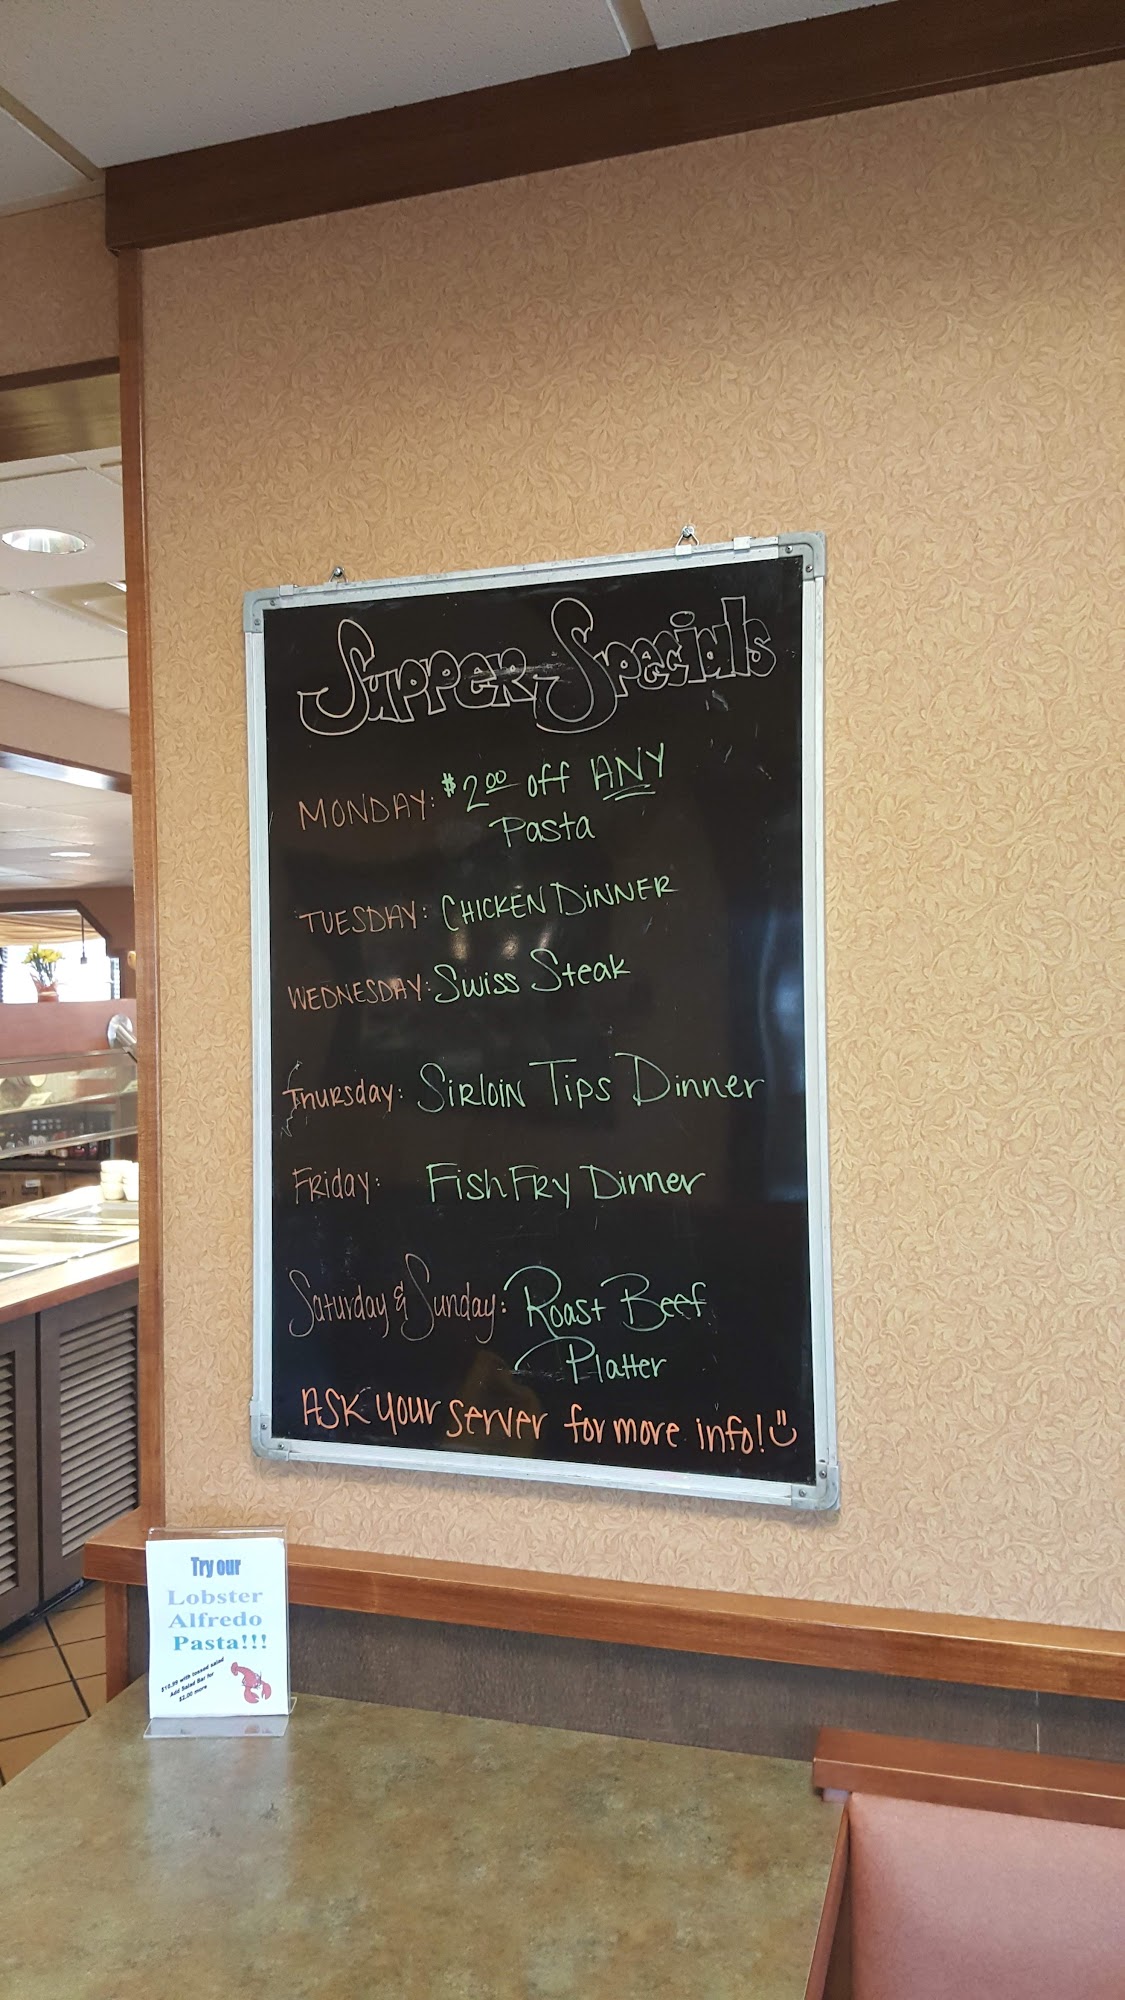 Supper Specials
MONDAY: $2.00 off ANY
Pasta
TUESDAY: CHICKEN DINNER
WEDNESDAY: Swiss Steak
Thursday: Sirloin Tips Dinner
Friday: Fish Fry Dinner
Saturday & Sunday: Roast Beef
Platter
Ask your server for more info!
Try our
Lobster
Alfredo
Pasta!!!
$10.99 with tossed salad
Add Salad Bar for
$2.00 more